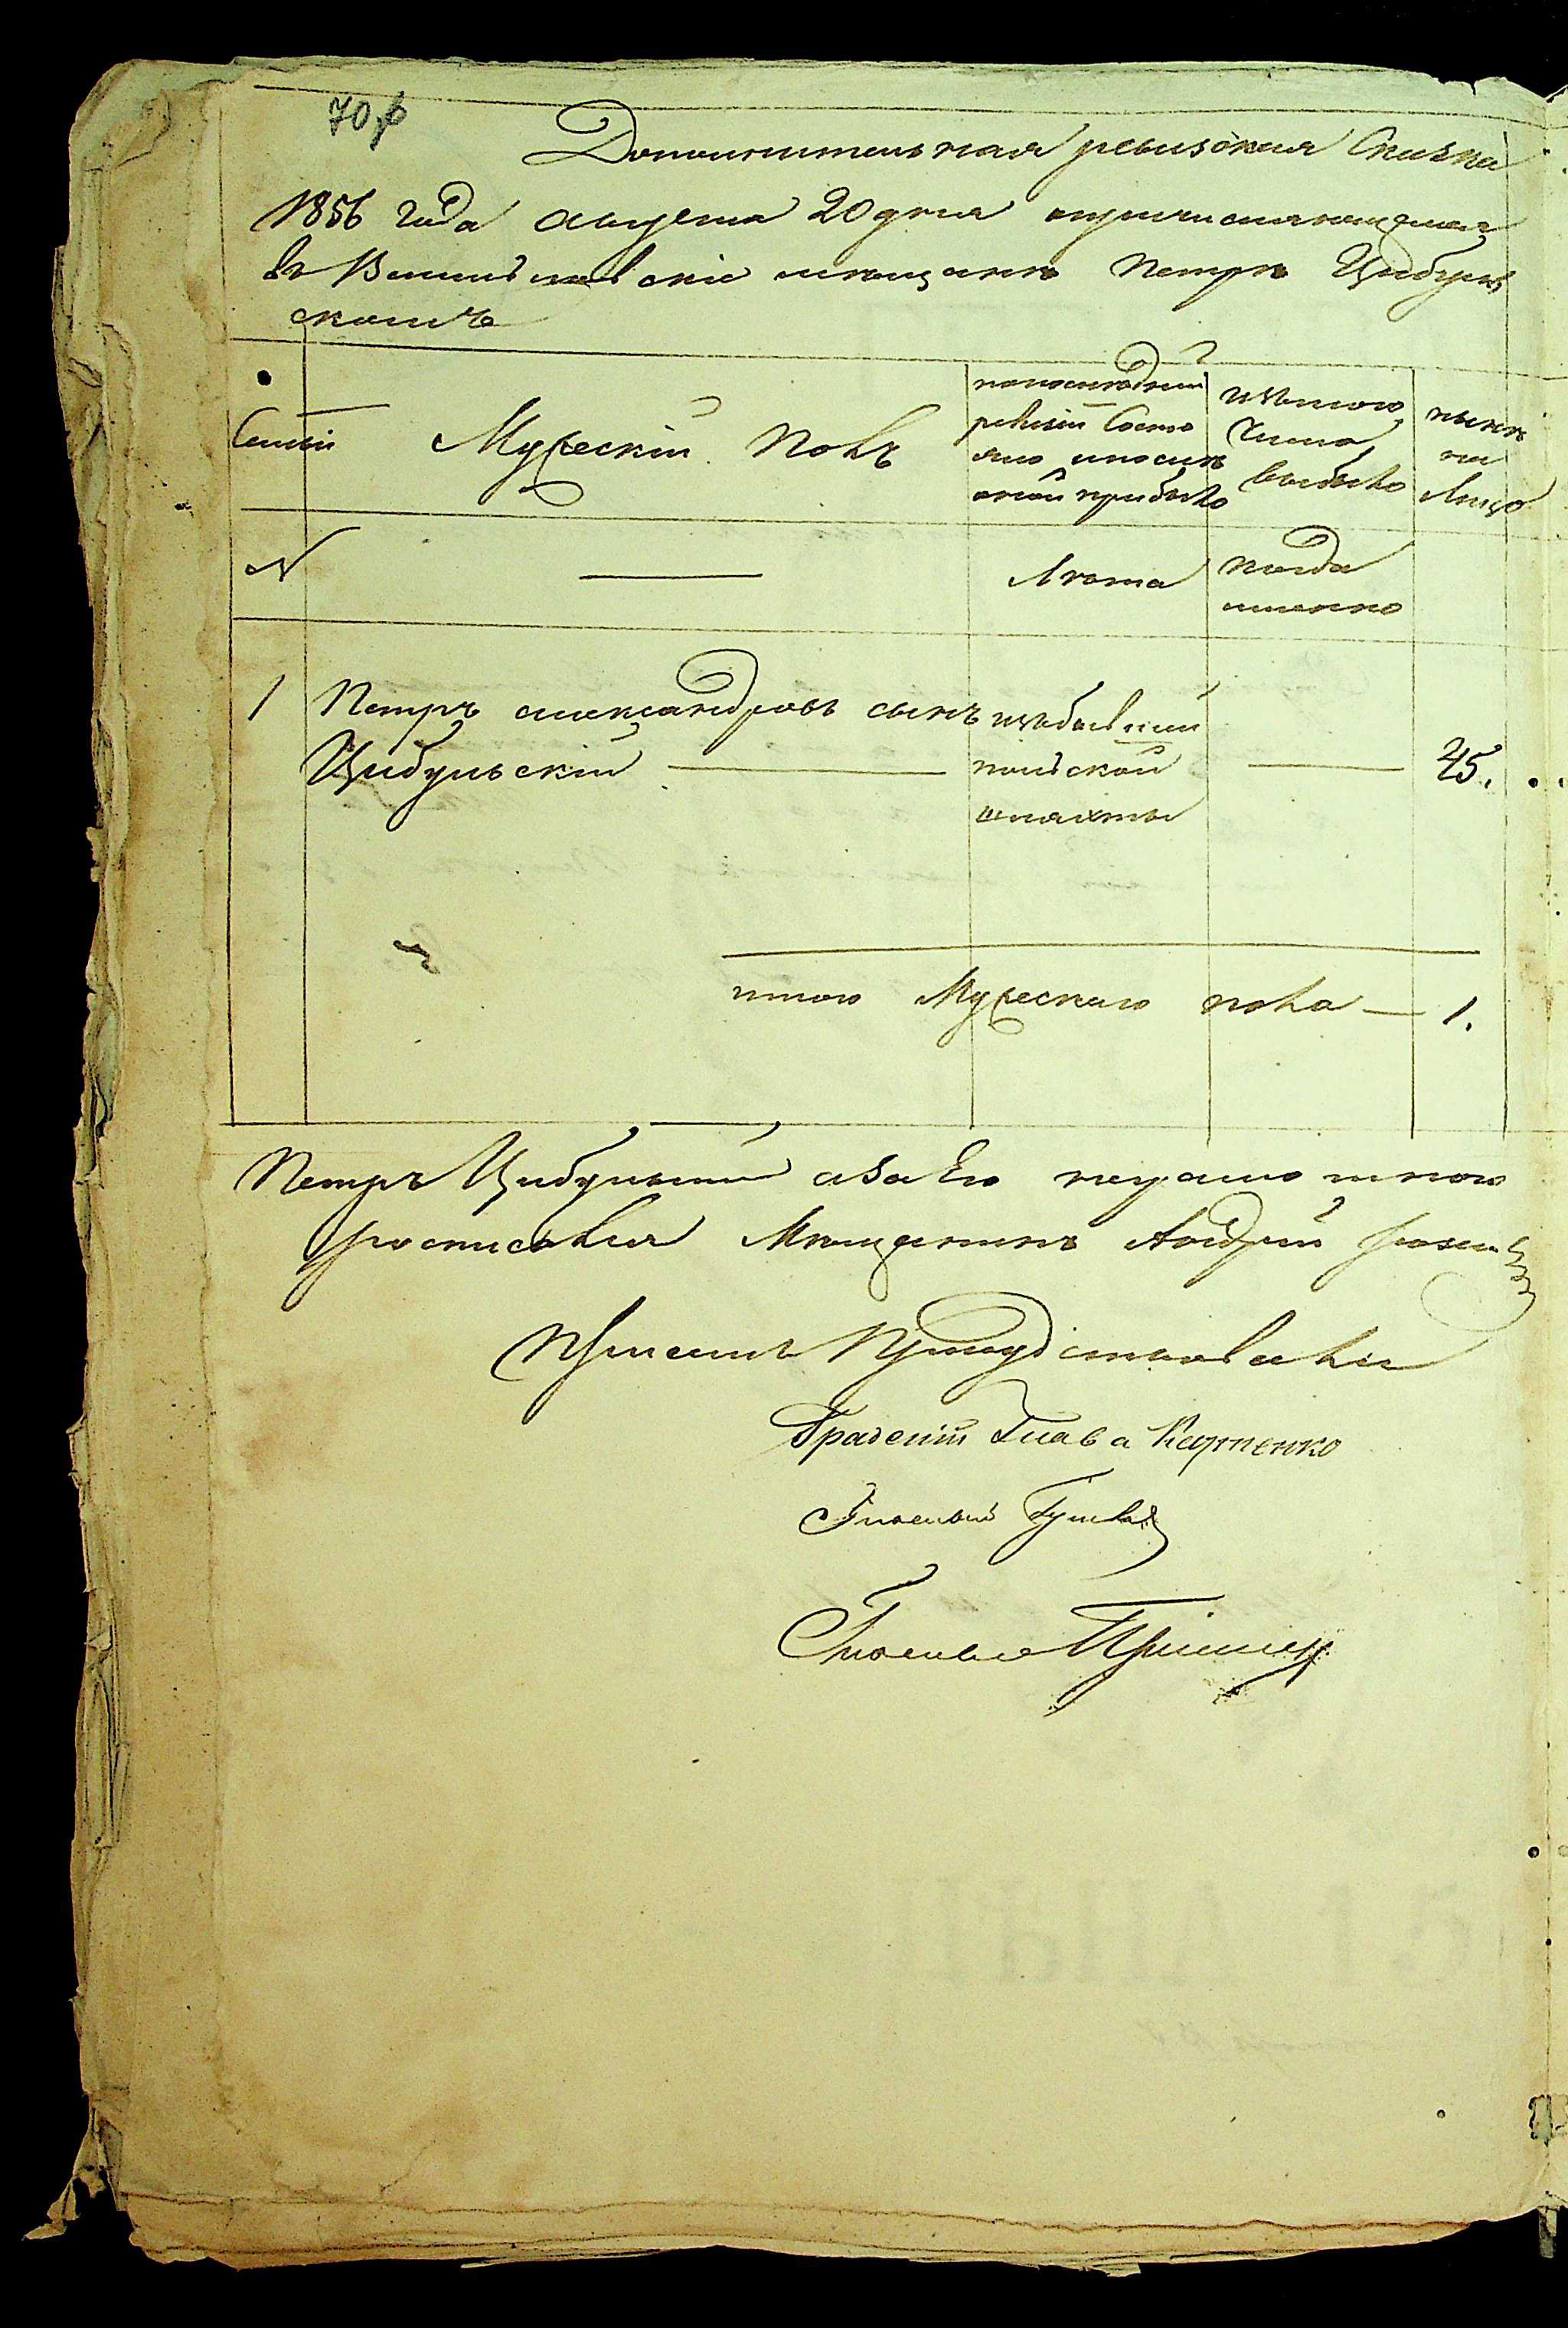 70
Дополнительная ревизская Сказка
1856 года августа 20 дня о причисляющемся
въ мещане Петре Цибуль
скомъ
Семьи
Мужескій полъ
по последней ревизіи Состояло и после оной прибыло
изъ того числа выбыло
ныне на лицо
N
Лета
когда именно
1 Петръ александровъ сынъ
Цибульскій
изъ бывшей польской шляхты
45.
итого Мужескаго пола — 1.
Петръ Цибульскій а за Его
росписался Мещанинъ Андрей
При семъ Присудствовали
Градскій Глава
Гласный
Гласный